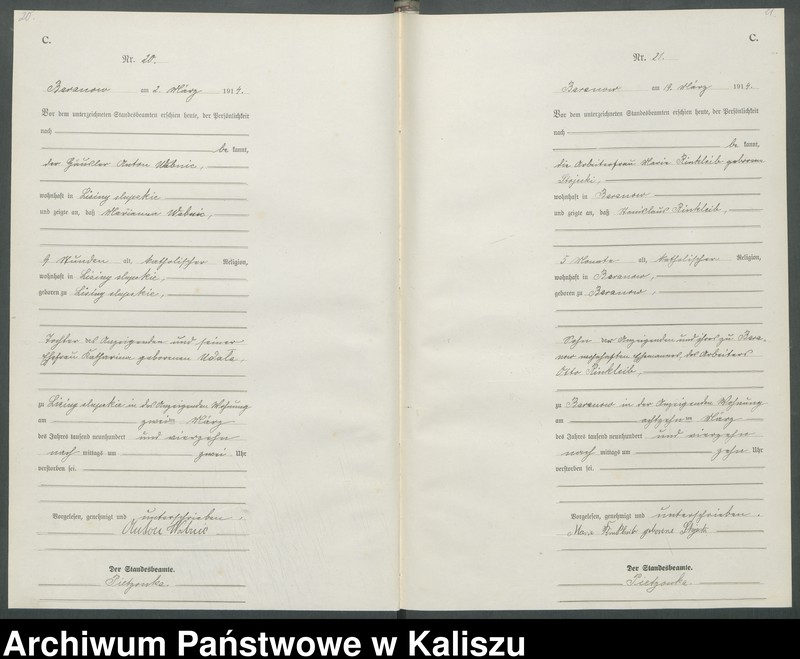 20.
C.
Nr. 20.
Baranow am 2. März 1914.
Vor dem unterzeichneten Standesbeamten erschien heute, der Persönlichkeit
nach
be kannt,
der Häusler Anton Wabnic,
wohnhaft in Lising slupskie
und zeigte an, daß Marianna Wabnic,
9 Stunden alt, katholischer Religion,
wohnhaft in Lising slupskie,
geboren zu Lising slupskie,
Tochter des Anzeigenden und seiner
Ehefrau Katharina geborenen
zu Lising slupskie in des Anzeigenden Wohnung
am zweiten März
des Jahres tausend neunhundert und vierzehn
nach mittags um zwei Uhr
verstorben sei.
Vorgelesen, genehmigt und unterschrieben.
Anton Wabnic
Der Standesbeamte.
Pietzonka.
21
C.
Nr. 21.
Baranow am 19. März 1914.
Vor dem unterzeichneten Standesbeamten erschien heute, der Persönlichkeit
nach
be kannt,
die Arbeiterfrau Marie Rinkleib geborene
wohnhaft in Baranow
und zeigte an, daß Stanislaus Rinkleib,
5 Monate alt, katholischer Religion,
wohnhaft in Baranow,
geboren zu Baranow,
Sohn der Anzeigenden und ihres zu Bara-
now wohnhaften Ehemannes, des Arbeiters
Otto Rinkleib,
zu Baranow in der Anzeigenden Wohnung
am achtzehnten März
des Jahres tausend neunhundert und vierzehn
nach mittags um zehn Uhr
verstorben sei.
Vorgelesen, genehmigt und unterschrieben.
Marie Rinkleib geborene
Der Standesbeamte.
Pietzonka.
Archiwum Państwowe w Kaliszu